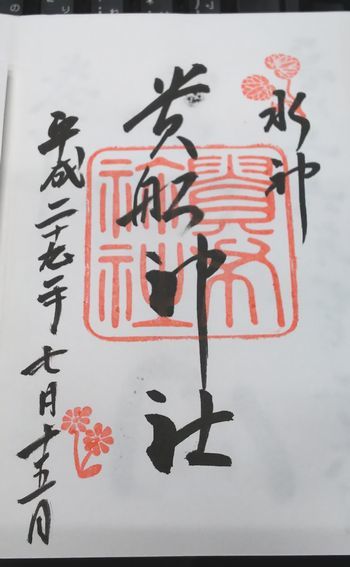 水神
貴船神社
平成二十七年七月十五日
貴布
祢社